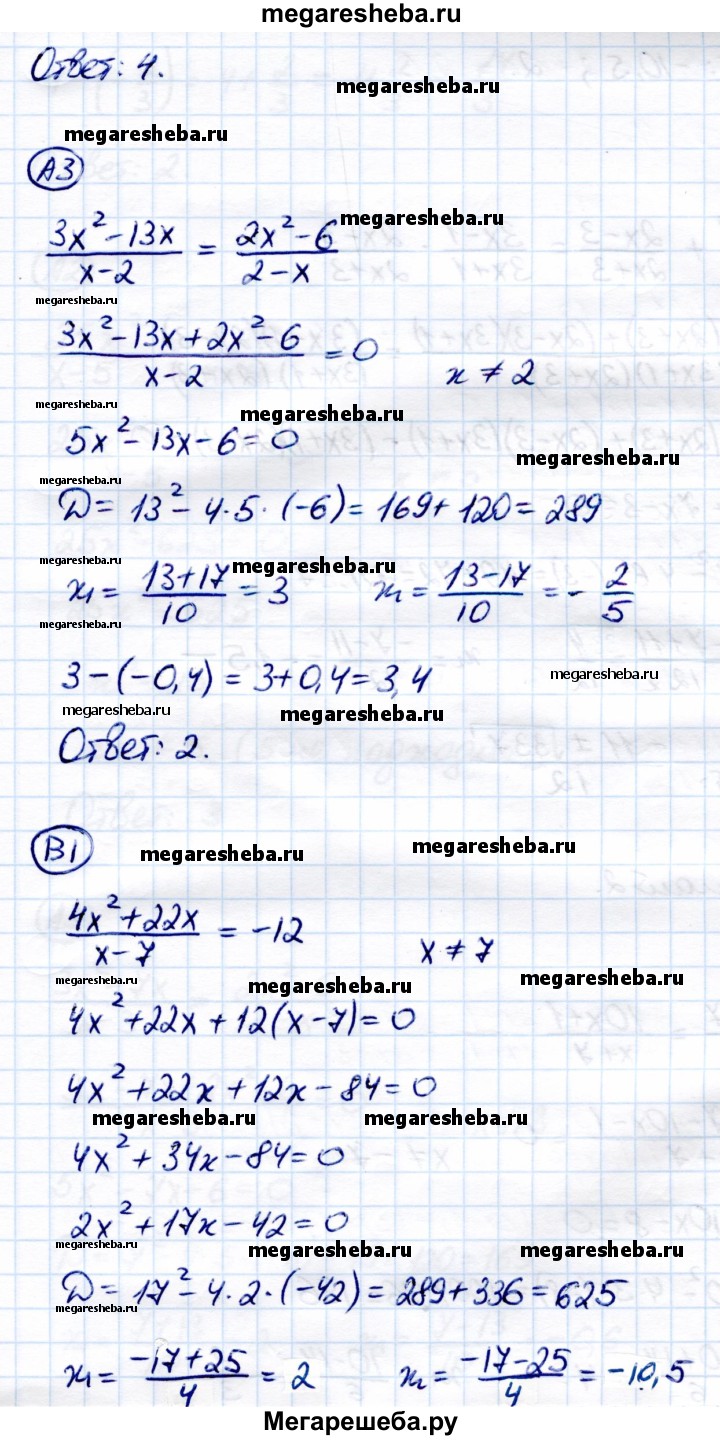 megaresheba.ru
Ответ: 4.
megaresheba.ru
megaresheba.ru
А3
(3x²-13x)/(x-2) = (2x²-6)/(2-x)
megaresheba.ru
megaresheba.ru
(3x²-13x+2x²-6)/(x-2) = 0 x ≠ 2
megaresheba.ru
megaresheba.ru
5x²-13x-6=0
megaresheba.ru
megaresheba.ru
D = 13²-4·5·(-6) = 169+120 = 289
megaresheba.ru
megaresheba.ru
x₁ = (13+17)/10 = 3 x₂ = (13-17)/10 = -2/5
megaresheba.ru
3-(-0,4) = 3+0,4 = 3,4
megaresheba.ru
megaresheba.ru
megaresheba.ru
Ответ: 2.
В1
megaresheba.ru
megaresheba.ru
(4x²+22x)/(x-7) = -12 x ≠ 7
megaresheba.ru
megaresheba.ru
megaresheba.ru
4x²+22x+12(x-7)=0
4x²+22x+12x-84=0
megaresheba.ru
megaresheba.ru
4x²+34x-84=0
2x²+17x-42=0
megaresheba.ru
megaresheba.ru
megaresheba.ru
D = 17²-4·2·(-42) = 289+336 = 625
megaresheba.ru
x₁ = (-17+25)/4 = 2 x₂ = (-17-25)/4 = -10,5
Мегарешеба.ру